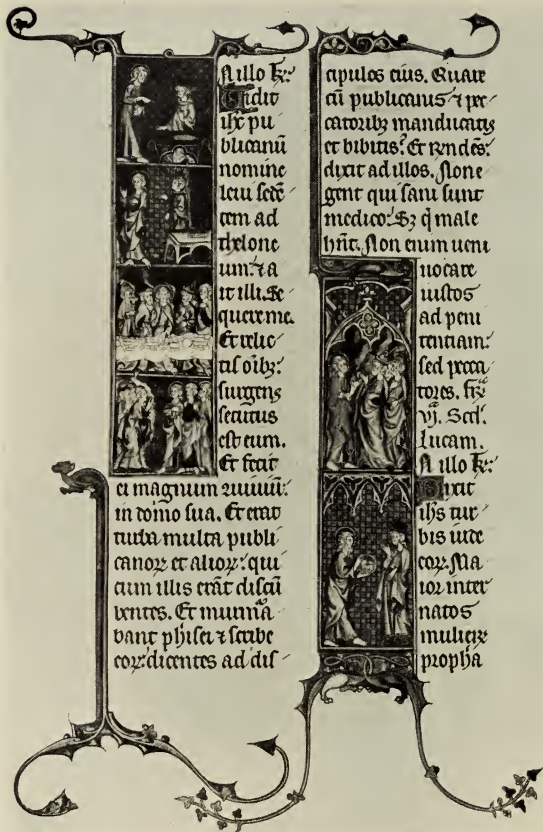 N illo tꝑ:
Vidit
ihc pu
blicanū
nomine
leui sedē
tem ad
thelone
um: ⁊ a
it illi. Se
quere me.
Et relic
tis oībꝫ:
surgens
secutus
est eum.
Et fecit
ei magnum
in domo sua. Et erat
turba multa publi
canoꝝ et alioꝝ: qui
cum illis erāt discū
bentes. Et murmᷓa
bant phisei ⁊ scribe
eoꝝ: dicentes ad dis
cipulos eius. Quare
cū publicanis ⁊ pec
catoribꝫ manducatis
et bibitis? Et rendēs:
dixit ad illos. Non e
gent qui sani sunt
medico: Sꝫ q̇ male
hn̄t. Non enim ueni
uocare
iustos
ad peni
tentiam:
sed pecca
tores. fīꝫ
vj. Scd̄.
lucam.
N illo tꝑ:
Dixit
ihs tur
bis iude
oꝝ. Ma
ior inter
natos
mulieꝝ
propha